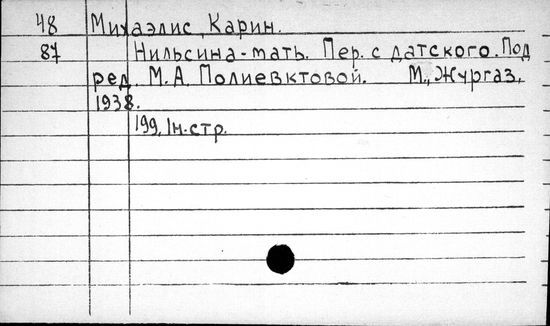 48 Михаэлис, Карин.
87 Нильсина-мать. Пер. с датского. Под
ред. М.А. Полиевктовой. М., Жургаз,
1938.
199, 1н.стр.